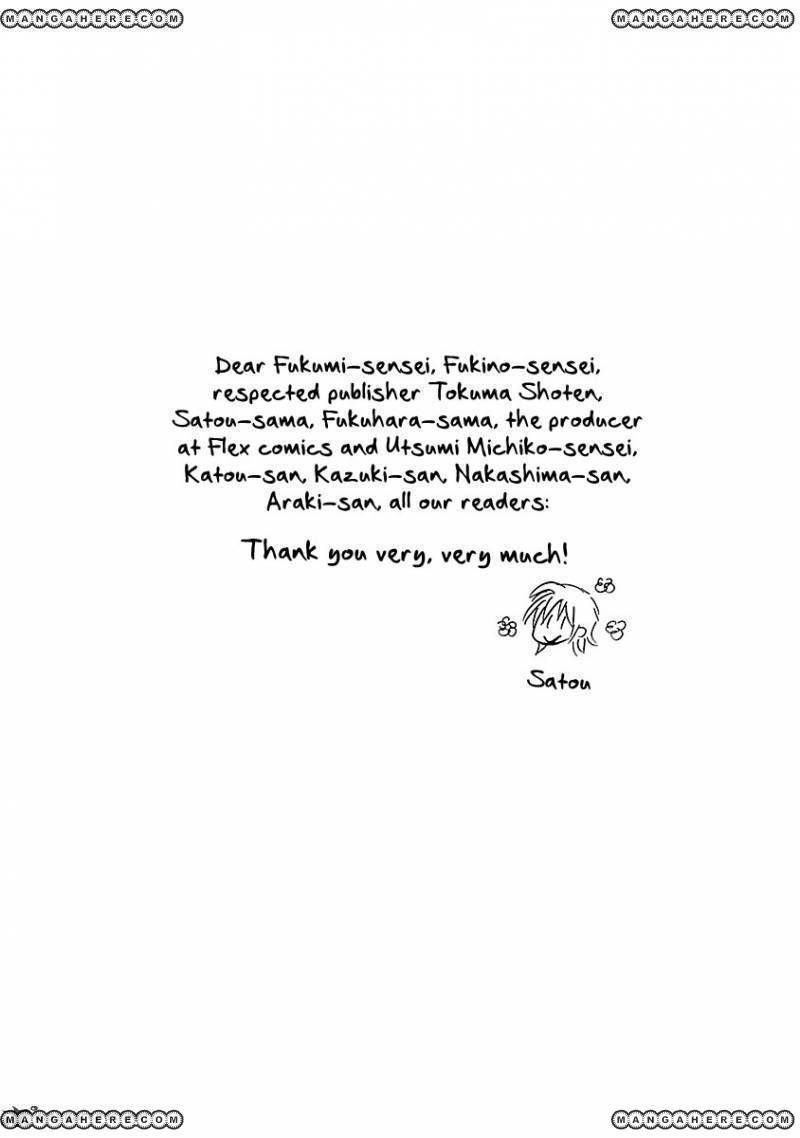 MANGAHERE.COM MANGAHERE.COM
Dear Fukumi-sensei, Fukino-sensei,
respected publisher Tokuma Shoten,
Satou-sama, Fukuhara-sama, the producer
at Flex comics and Utsumi Michiko-sensei,
Katou-san, Kazuki-san, Nakashima-san,
Araki-san, all our readers:
Thank you very, very much!
Satou
MANGAHERE.COM MANGAHERE.COM